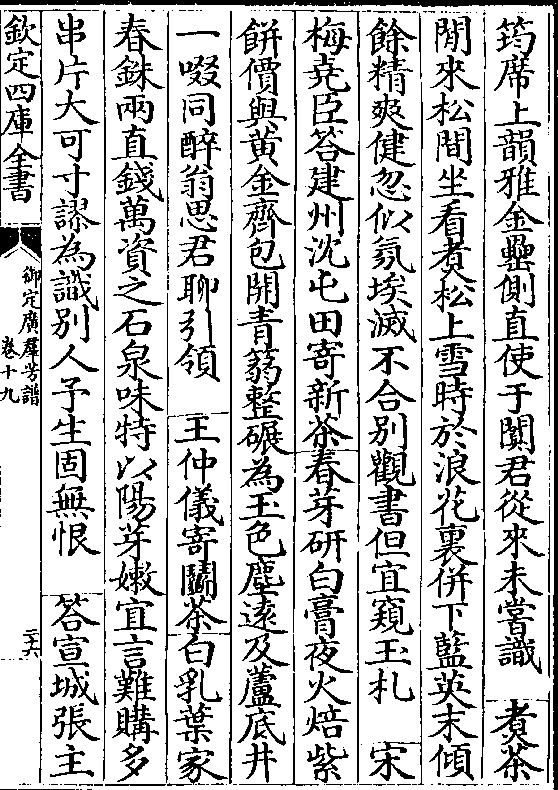 筠席上韻雅金罍側直使于闐君從來未嘗識　煮茶
閒來松間坐看煮松上雪時於浪花裏併下藍英末傾
餘精爽健忽似氛埃滅不合別觀書但宜窺玉札　宋
梅堯臣答建州沈屯田寄新茶春芽研白膏夜火焙紫
餅價與黃金齊包開青篛整碾為玉色塵遠及蘆底井
一啜同醉翁思君聊引領　王仲儀寄鬬茶白乳葉家
春銖兩直錢萬資之石泉味特以陽芽嫩宜言難購多
串片大可寸謬為識別人予生固無恨　答宣城張主
欽定四庫全書
御定廣羣芳譜
卷十九
二十六